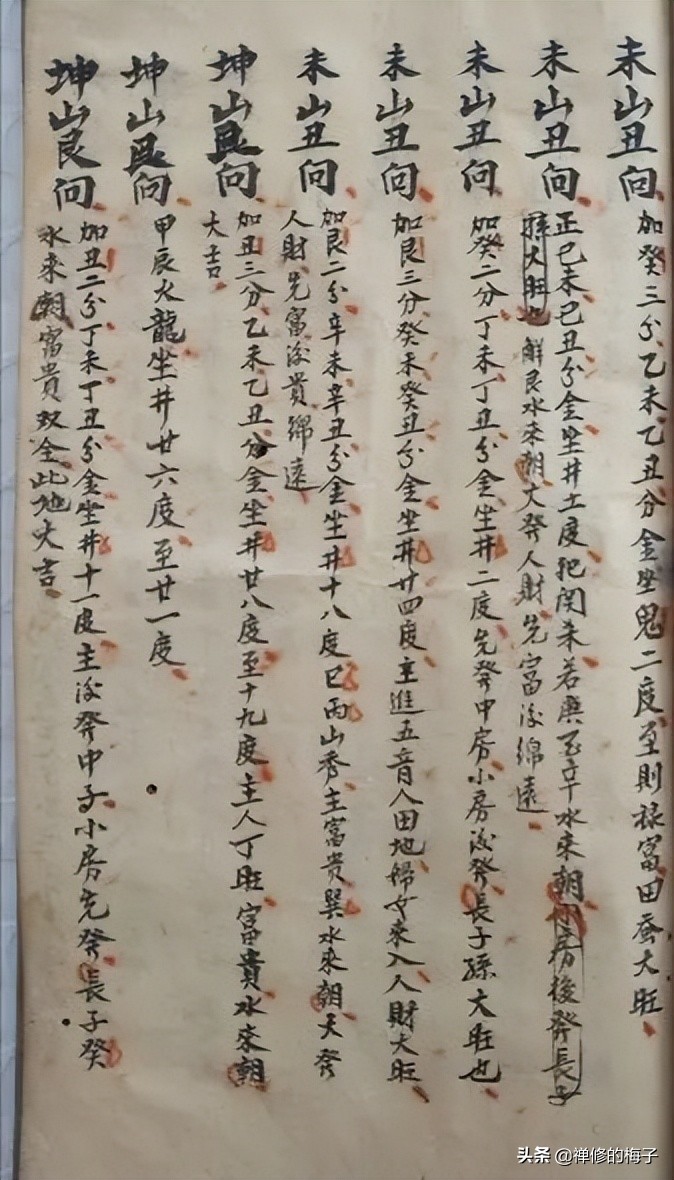 未山丑向 加癸三分乙未乙丑分金坐鬼二度至則祿富田蚕大旺
未山丑向 正己未己丑分金坐井土度犯関杀若庚水來朝小房後發長子
孫大旺也觧艮水來朝大發人財先富後綿遠
未山丑向 加癸二分丁未丁丑分金坐井二度先發中房小房後發長子孫大旺也
未山丑向 加艮三分癸未癸丑分金坐井廿四度主進五音人田地婦女來入人財大旺
未山丑向 加艮二分辛未辛丑分金坐井十八度巳丙山秀主富貴巽水來朝大發
人財先富後貴綿遠
坤山艮向 加丑三分乙未乙丑分金坐井廿八度至十九度主人丁旺富貴水來朝
大吉
坤山艮向 甲辰火龍坐井廿六度至廿一度
坤山艮向 加丑二分丁未丁丑分金坐井十一度主後發中子小房先發長子癸
水來朝富貴双全此地大吉
头条 @禅修的梅子